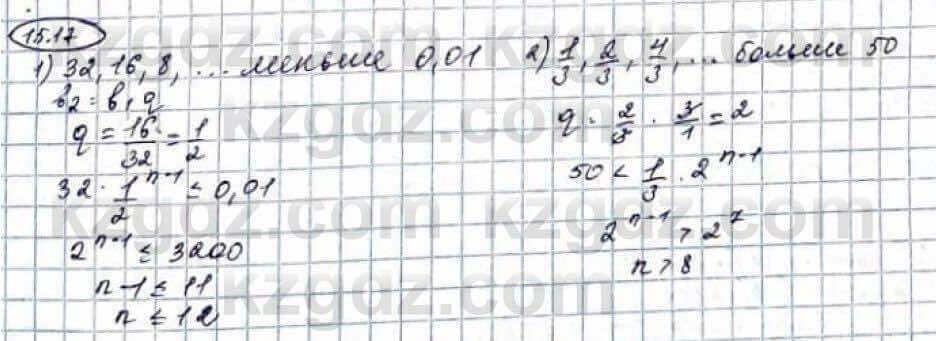 15.17
1) 32, 16, 8, ... меньше 0,01
b₂ = b₁q
q = 16/32 = 1/2
32 · 1/2ⁿ⁻¹ ≤ 0,01
2ⁿ⁻¹ ≤ 3200
n-1 ≤ 11
n ≤ 12
2) 1/3, 2/3, 4/3, ... больше 50
q = 2/3 · 3/1 = 2
50 < 1/3 · 2ⁿ⁻¹
2ⁿ⁻¹ > 2⁷
n > 8
kzgdz.com
kzgdz.com
kzgdz.com
kzgdz.com
kzgdz.com